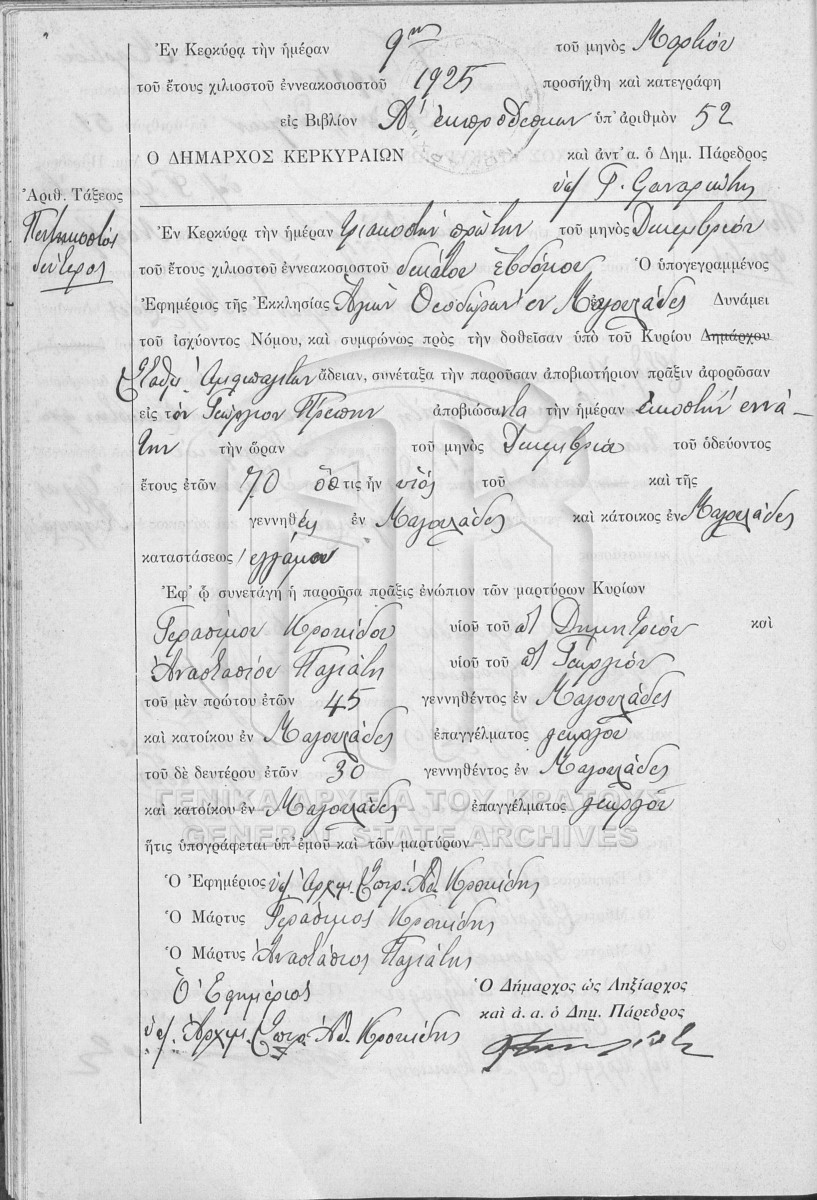 Ἐν Κερκύρᾳ τὴν ἡμέραν 9ην τοῦ μηνὸς Μαρτίου
τοῦ ἔτους χιλιοστοῦ ἐννεακοσιοστοῦ 1925 προσήχθη καὶ κατεγράφη
εἰς Βιβλίον Α΄. ἐκπροθέσμων ὑπ' ἀριθμὸν 52
Ο ΔΗΜΑΡΧΟΣ ΚΕΡΚΥΡΑΙΩΝ καὶ ἀντ' α. ὁ Δημ. Πάρεδρος
Ἀριθ. Τάξεως
Πεντηκοστὸς
δεύτερος
Ἐν Κερκύρᾳ τὴν ἡμέραν τριακοστὴν πρώτην τοῦ μηνὸς Δεκεμβρίου
τοῦ ἔτους χιλιοστοῦ ἐννεακοσιοστοῦ δεκάτου ἑβδόμου Ὁ ὑπογεγραμμένος
Ἐφημέριος τῆς Ἐκκλησίας Ἁγίων Θεοδώρων ἐν Μαγουλάδες Δυνάμει
τοῦ ἰσχύοντος Νόμου, καὶ συμφώνως πρὸς τὴν δοθεῖσαν ὑπὸ τοῦ Κυρίου Δημάρχου
ἄδειαν, συνέταξα τὴν παροῦσαν ἀποβιωτήριον πρᾶξιν ἀφορῶσαν
εἰς τὸν Γεώργιον ἀποβιώσαντα τὴν ἡμέραν εἰκοστὴν ἐννά-
την τὴν ὥραν τοῦ μηνὸς Δεκεμβρίου τοῦ ὁδεύοντος
ἔτους ἐτῶν 70 ὅστις ἦν υἱὸς τοῦ καὶ τῆς
γεννηθεὶς ἐν Μαγουλάδες καὶ κάτοικος ἐν Μαγουλάδες
καταστάσεως ἐγγάμου
Ἐφ' ᾧ συνετάγη ἡ παροῦσα πρᾶξις ἐνώπιον τῶν μαρτύρων Κυρίων
Γερασίμου Κροκίδου υἱοῦ τοῦ Δημητρίου καὶ
Ἀναστασίου Παγιάτη υἱοῦ τοῦ Γεωργίου
τοῦ μὲν πρώτου ἐτῶν 45 γεννηθέντος ἐν Μαγουλάδες
καὶ κατοίκου ἐν Μαγουλάδες ἐπαγγέλματος γεωργοῦ
τοῦ δὲ δευτέρου ἐτῶν 30 γεννηθέντος ἐν Μαγουλάδες
καὶ κατοίκου ἐν Μαγουλάδες ἐπαγγέλματος γεωργοῦ
ΓΕΝΙΚΑ ΑΡΧΕΙΑ ΤΟΥ ΚΡΑΤΟΥΣ
GENERAL STATE ARCHIVES
ἥτις ὑπογράφεται ὑπ' ἐμοῦ καὶ τῶν μαρτύρων
Ὁ Ἐφημέριος Κροκίδης
Ὁ Μάρτυς Γεράσιμος Κροκίδης
Ὁ Μάρτυς Ἀναστάσιος Παγιάτης
Ὁ Ἐφημέριος
Κροκίδης
Ὁ Δήμαρχος ὡς Ληξίαρχος
καὶ ἀ. α. ὁ Δημ. Πάρεδρος